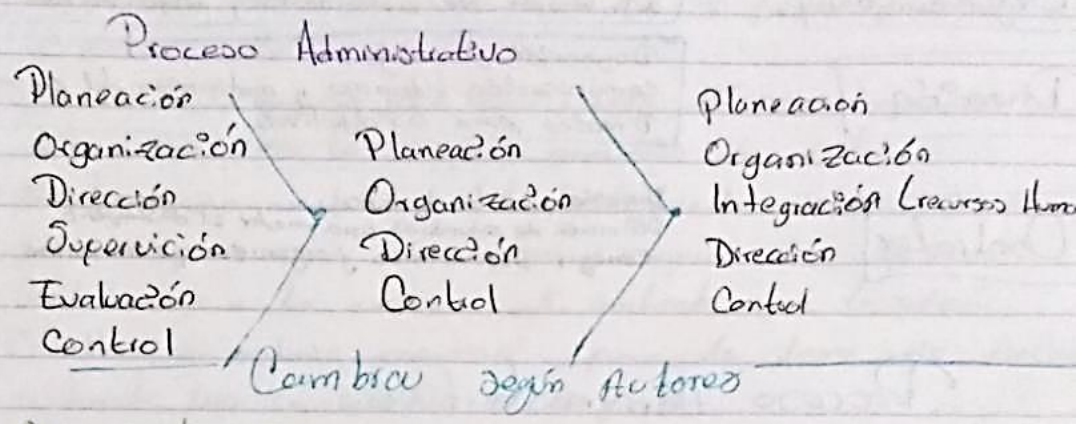 Proceso Administrativo
Planeación
Organización
Dirección
Supervición
Evaluación
Control
Planeación
Organización
Dirección
Control
Planeación
Organización
Integración (recursos Huma
Dirección
Control
Cambia según Autores